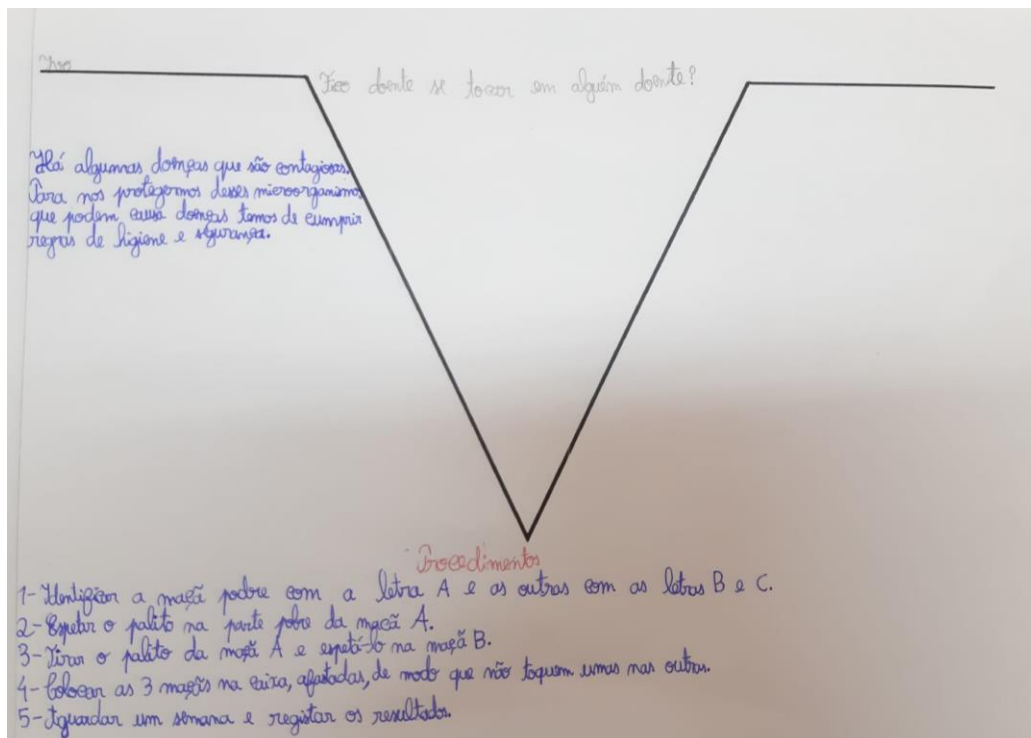 Fico doente se tocar em alguém doente?
Há algumas doenças que são contagiosas.
Para nos protegermos desses microorganismos
que podem causa doenças temos de cumprir
regras de higiene e segurança.
Procedimentos
1- Identificar a maçã podre com a letra A e as outras com as letras B e C.
2- Espetar o palito na parte pobre da maçã A.
3- Tirar o palito da maçã A e espetá-lo na maçã B.
4- Colocar as 3 maçãs na caixa, afastadas, de modo que não toquem umas nas outras.
5- Aguardar um semana e registar os resultados.